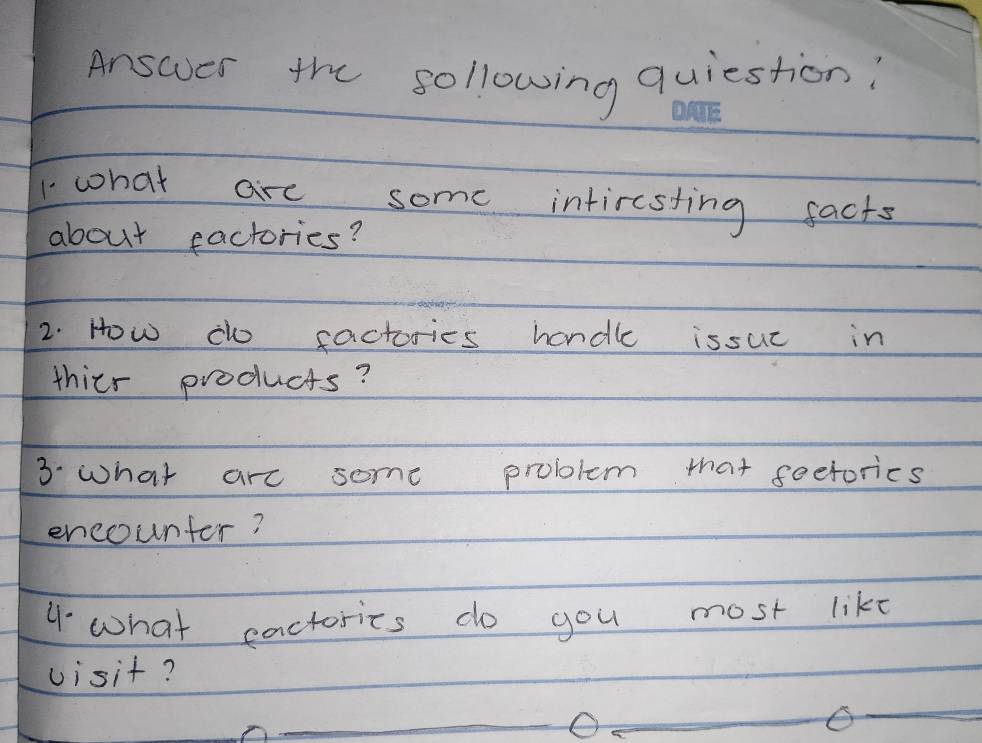 Answer the following quiestion:
DATE
1. what are some intiresting facts
about factories?
2. How do factories handle issue in
thier products?
3. what are some problem that foctories
encounter?
4. what factories do you most like
visit?